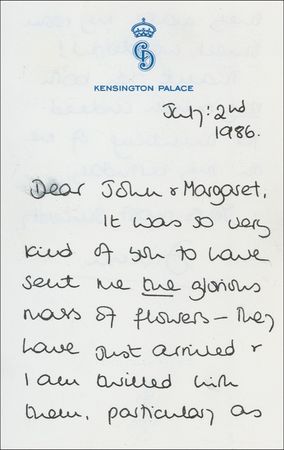 CD
KENSINGTON PALACE
July: 2nd
1986.
Dear John & Margaret,
It was so very
kind of you to have
sent me the glorious
mass of flowers - they
have just arrived &
I am thrilled with
them, particularly as